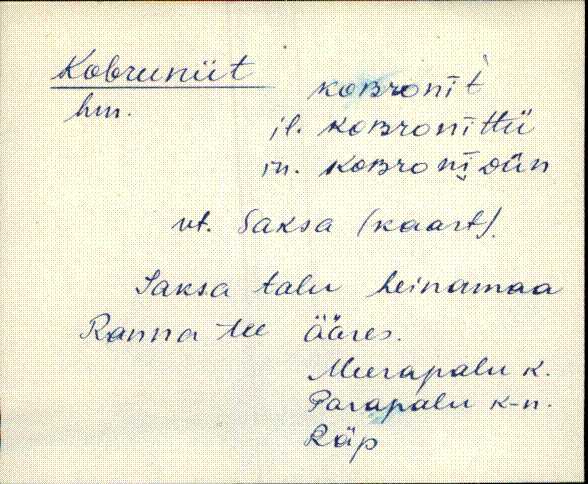 Kobruniit koʙronìt
hm. il. koʙronittü
in. koʙroniᴅün
vt. Saksa (kaart).
Saksa talu heinamaa
Ranna tee ääres.
Meerapalu k.
Parapalu k-n.
Räp